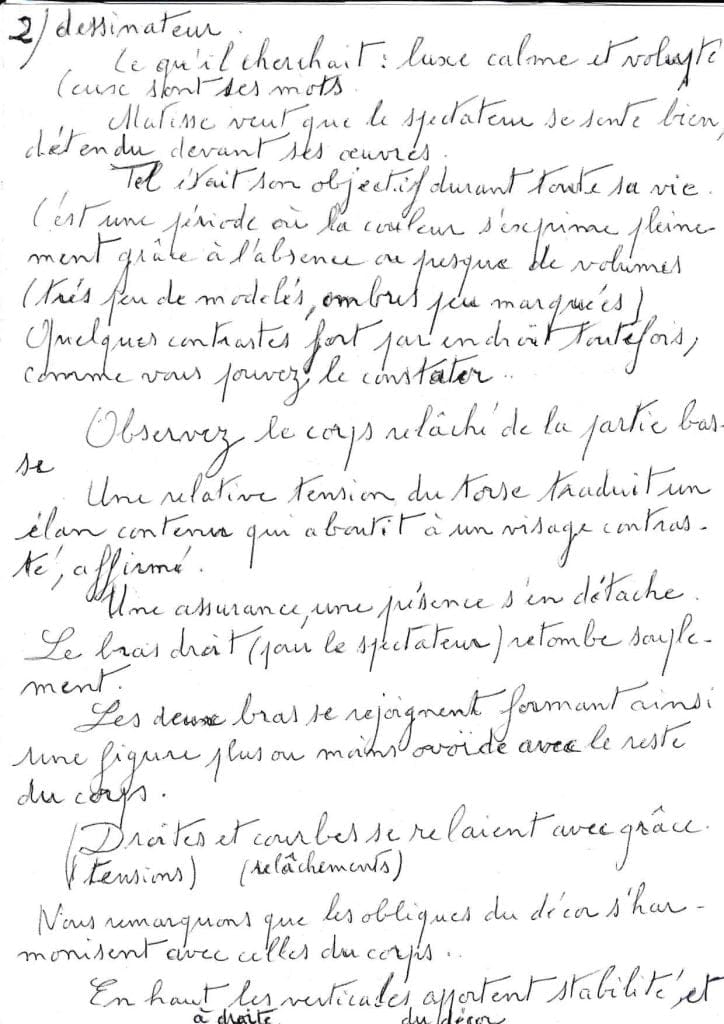 2/ dessinateur.
Ce qu'il cherchait : luxe calme et volupté
(ceux sont ses mots.
Matisse veut que le spectateur se sente bien,
détendu devant ses œuvres.
Tel était son objectif durant toute sa vie.
C'est une période où la couleur s'exprime pleine-
ment grâce à l'absence ou presque de volumes
(très peu de modelés, ombres peu marquées)
Quelques contrastes fort par endroit toutefois,
comme vous pouvez le constater..
Observez le corps relâché de la partie bas-
se
Une relative tension du torse traduit un
élan contenu qui aboutit à un visage contras-
té, affirmé.
Une assurance, une présence s'en détache.
Le bras droit (pour le spectateur) retombe souple-
ment.
Les deux bras se rejoignent formant ainsi
une figure plus ou moins ovoïde avec le reste
du corps.
(Droites et courbes se relaient avec grâce.
(tensions) (relâchements)
Nous remarquons que les obliques du décor s'har-
monisent avec celles du corps..
En haut les verticales apportent stabilité, et
à droite du décor